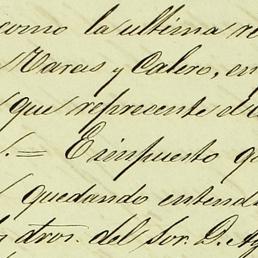 como la ultima re
Maras y Calero, en
que reprecente el
.= E impuesto q
quedando entend
y dros. del Sor. D. Ag